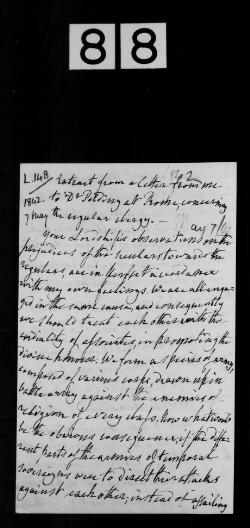 88
L. 148 Extract from a letter from me
1842
1842. to Dr Polding at Rome, concerning
7 May the regular clergy. —
May 7/
Your Lordship's observations on the
prejudices of the seculars towards the
regulars, are in perfect accordance
with my own feelings. We are all enga-
ged in the same cause, and consequently
we should treat each other with the
cordiality of associates, in promoting the
divine honour. We form a species of army,
composed of various corps, drawn up in
battle array against the enemies of
religion of every class. Now what would
be the obvious consequence, if the diffe-
rent parts of the armies of temporal
sovereigns were to direct their attacks
against each other, instead of assailing